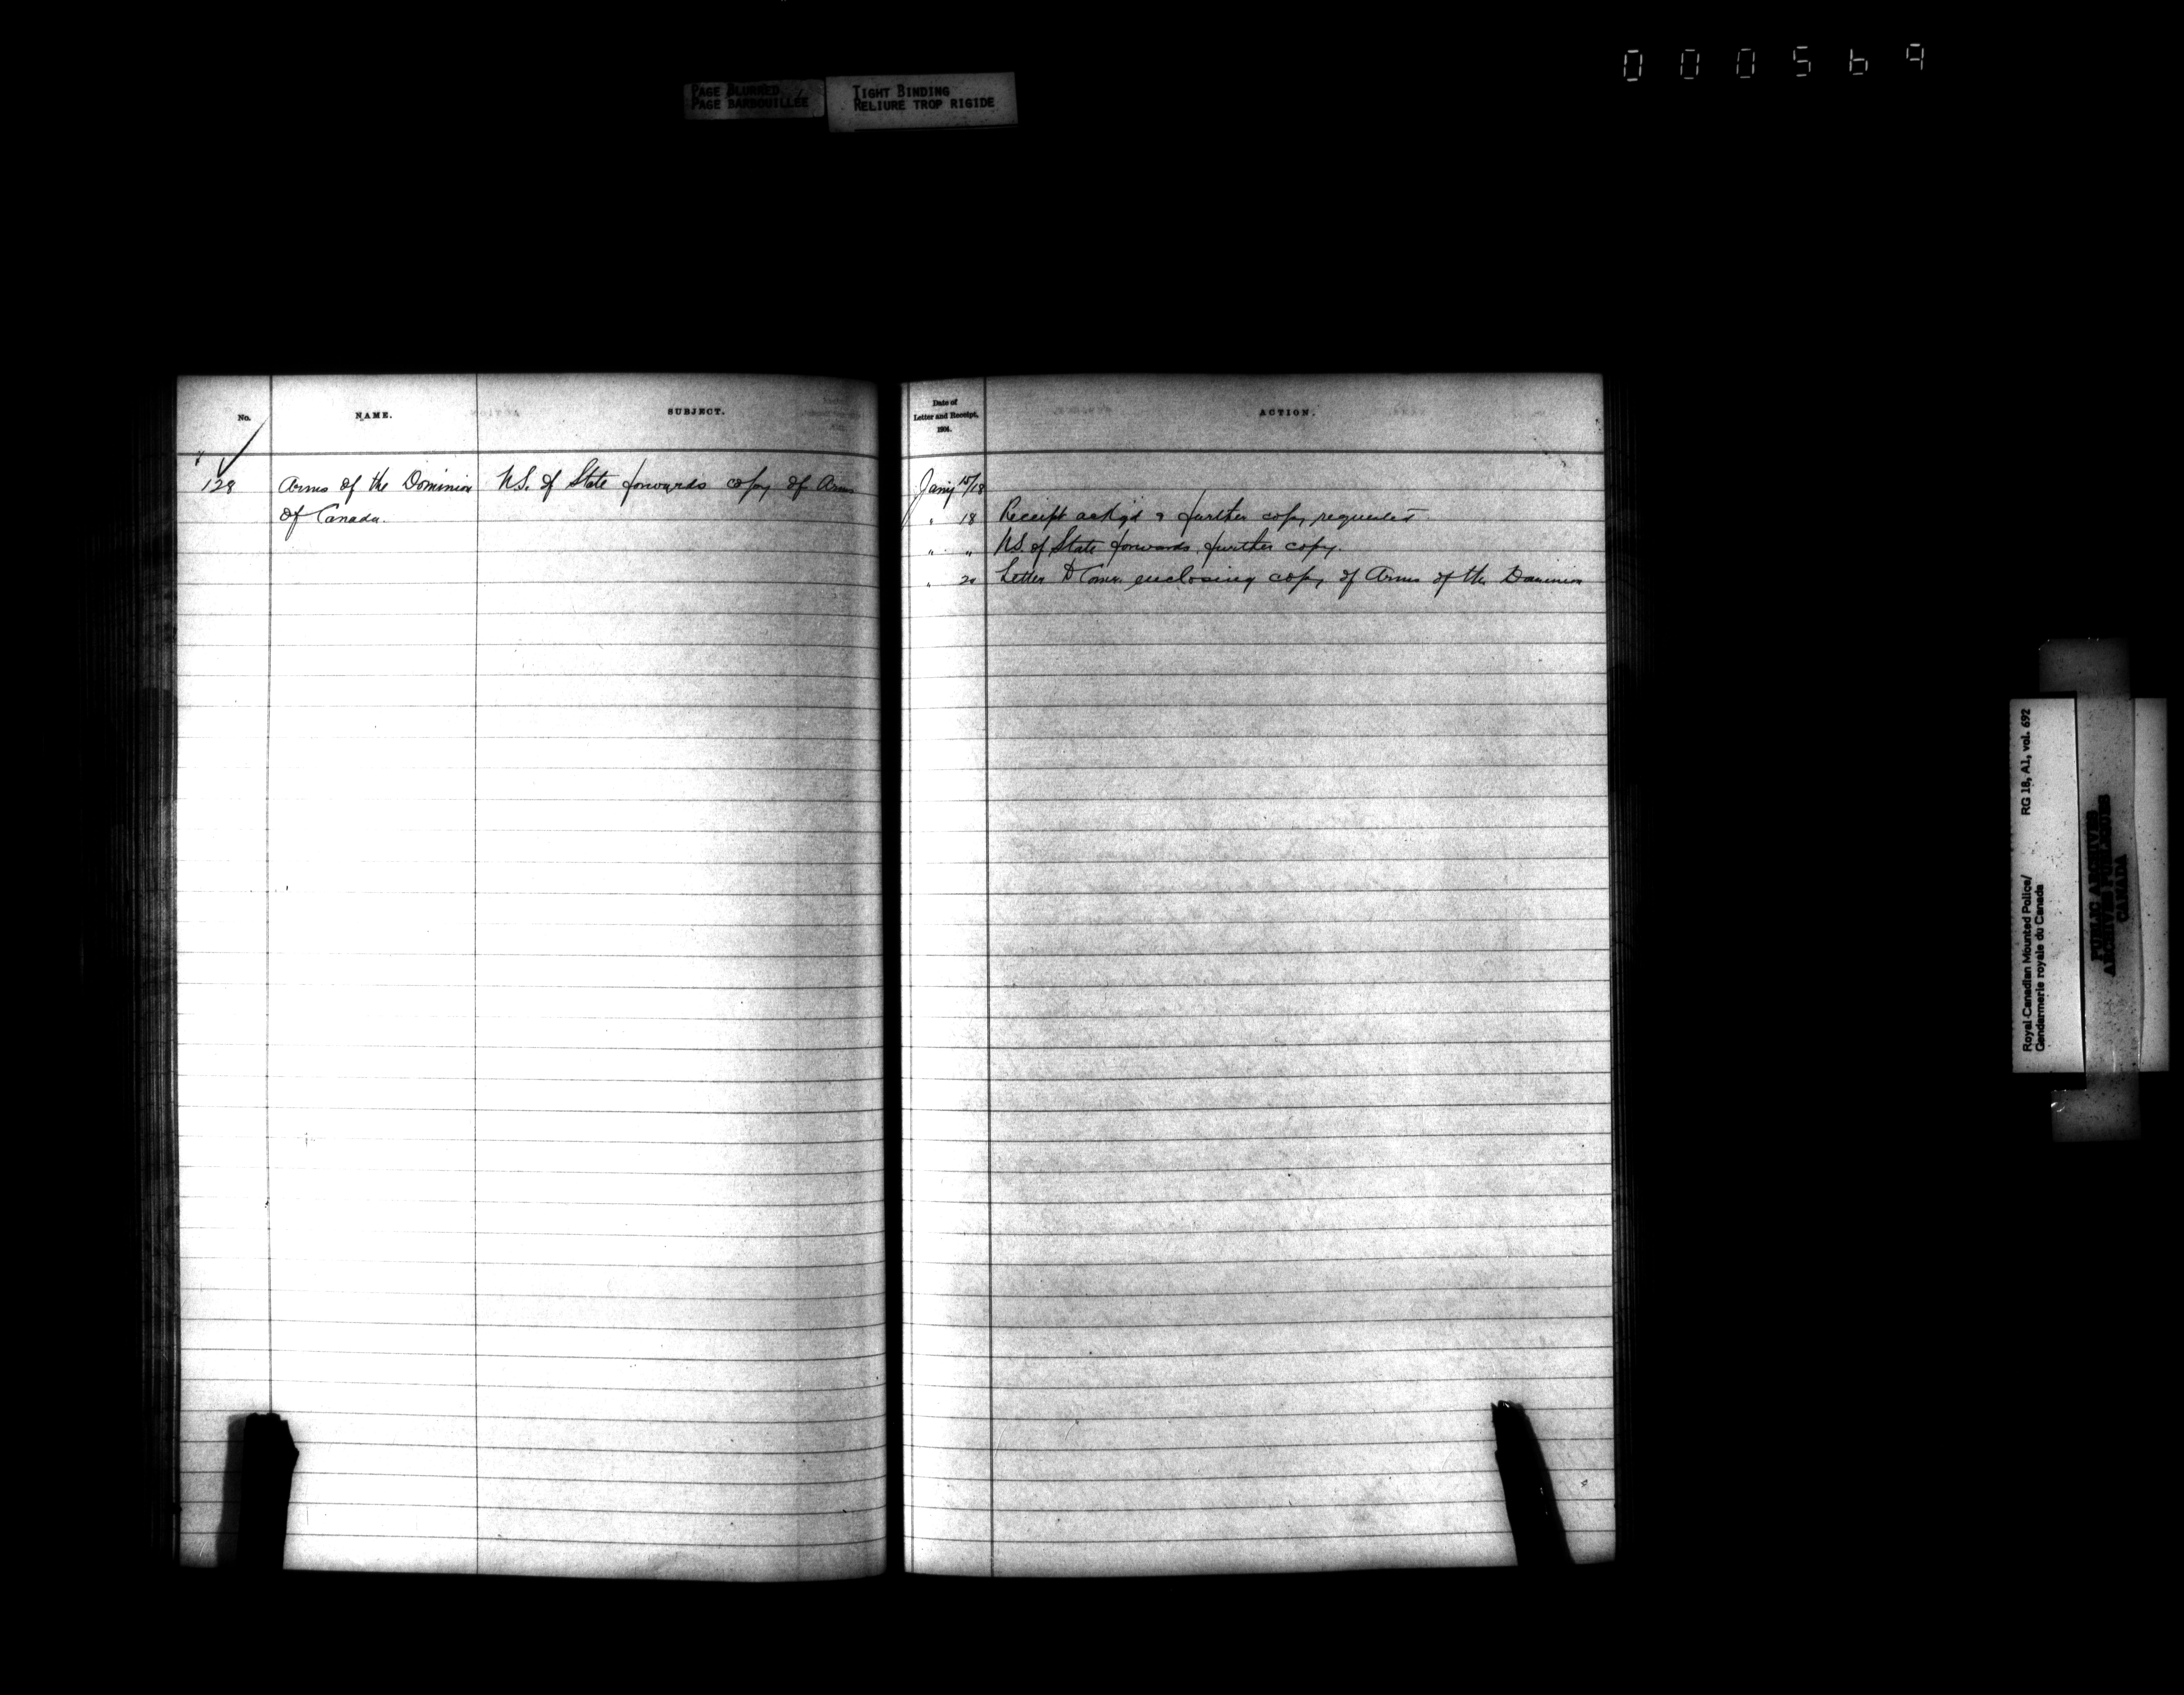 000569
PAGE BLURRED
PAGE BARBOUILLÉE
TIGHT BINDING
RELIURE TROP RIGIDE
No. NAME. SUBJECT.
128 Arms of the Dominion U.S. of State forwards copy of Arms
of Canada.
Date of
Letter and Receipt,
1904.
ACTION.
Jany 15/18
" 18 Receipt ackgd & further copy requested
" " U.S. of State forwards further copy.
" 20 Letter to Comr. enclosing copy of Arms of the Dominion
Royal Canadian Mounted Police/ RG 18, A1, vol. 692
Gendarmerie royale du Canada
PUBLIC ARCHIVES
ARCHIVES PUBLIQUES
CANADA